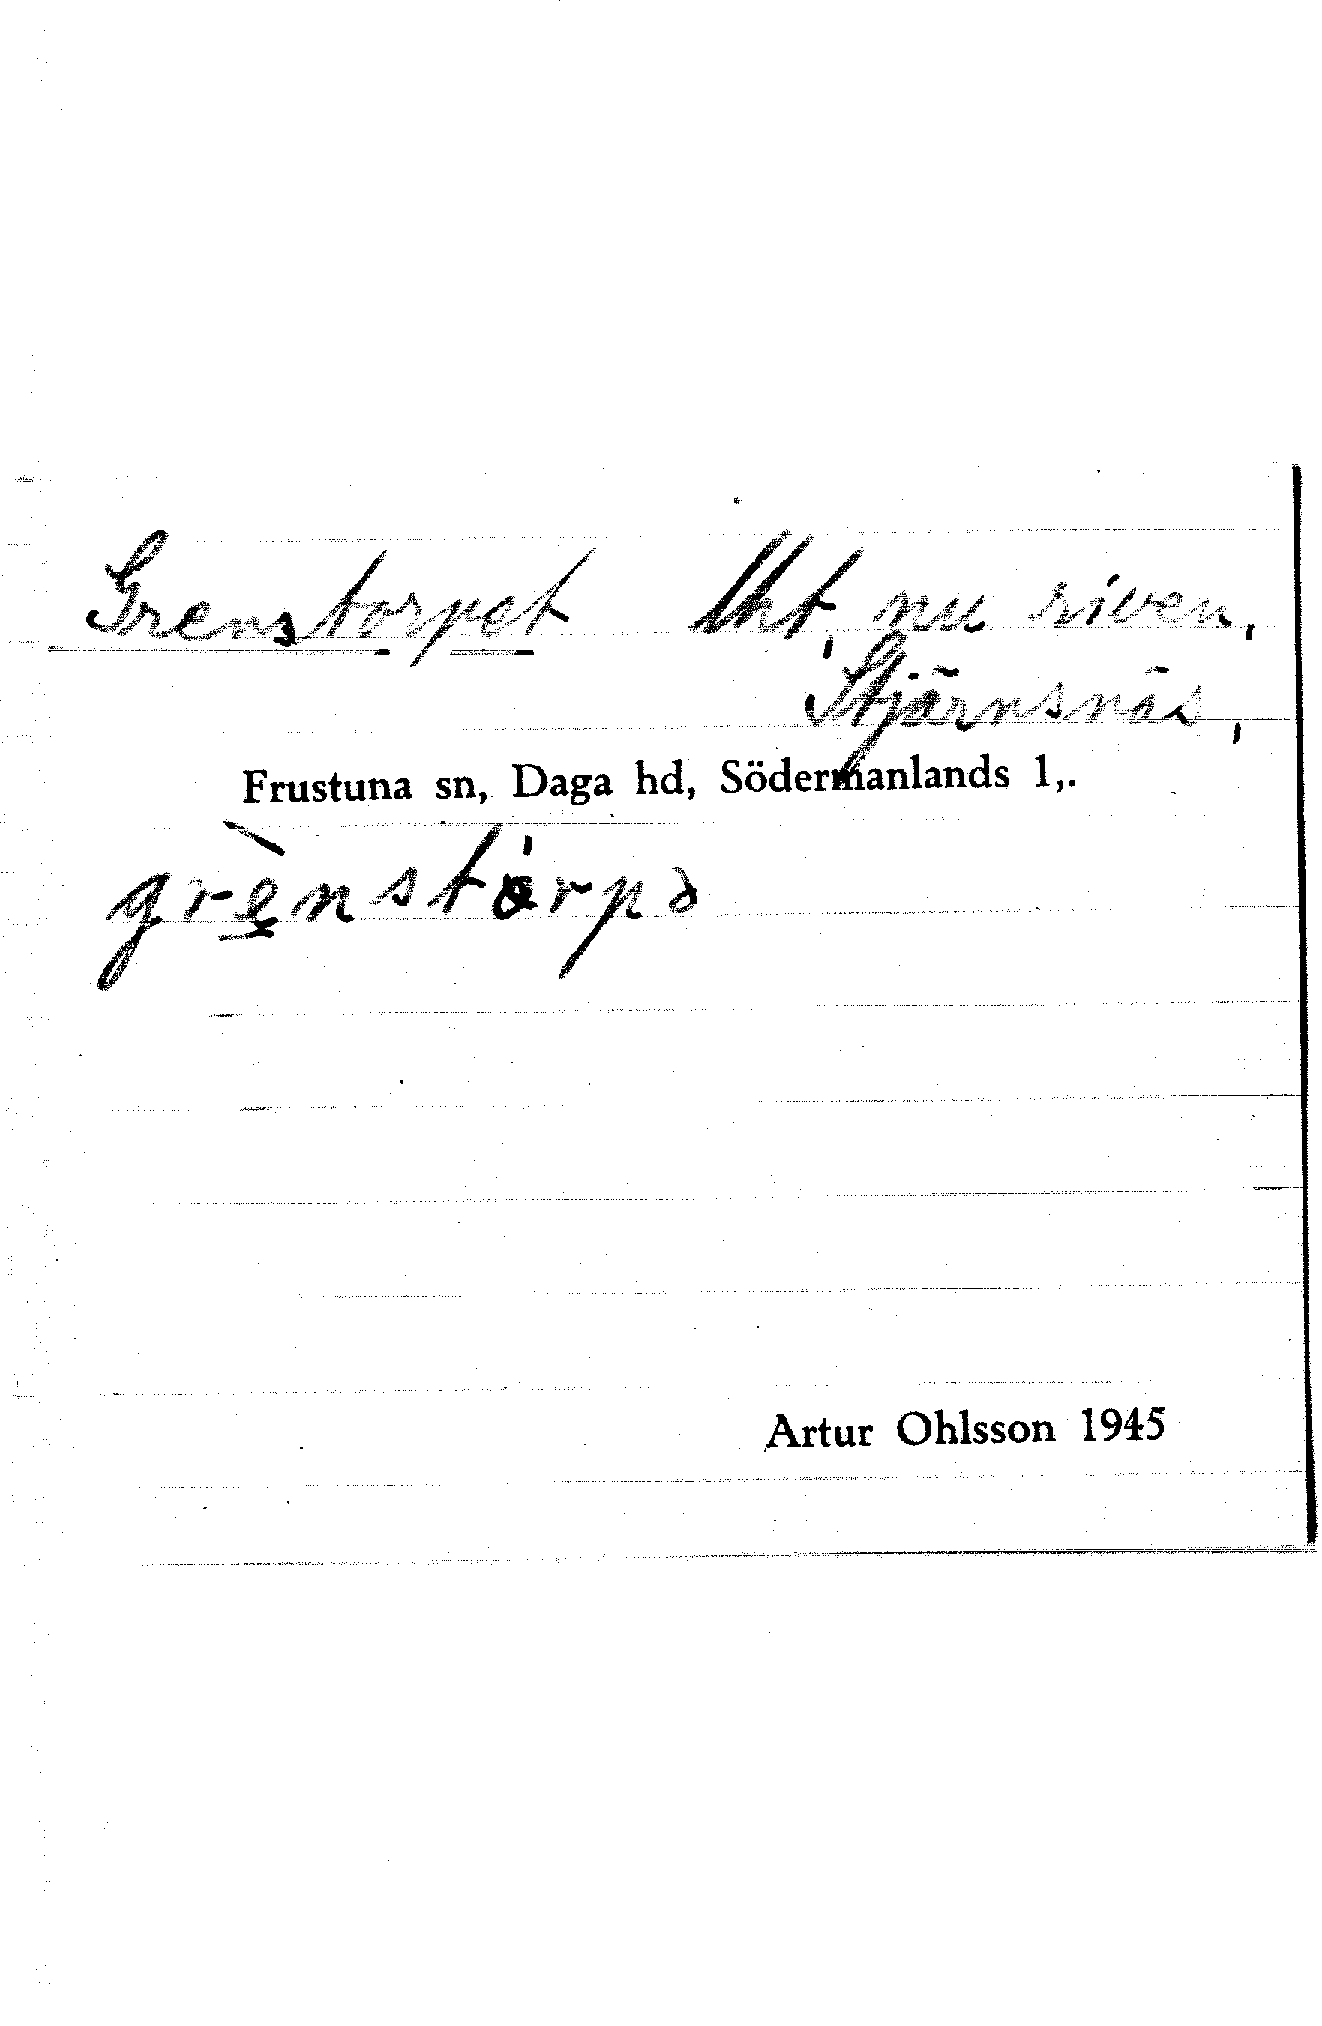 Grenstorpet lht, nu riven,
Stjärnsnäs,
Frustuna sn, Daga hd, Södermanlands l,.
grènstórpə
Artur Ohlsson 1945